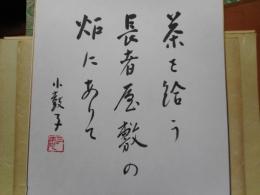 茶を給う
長者屋敷の
炉にありて
小鼓子